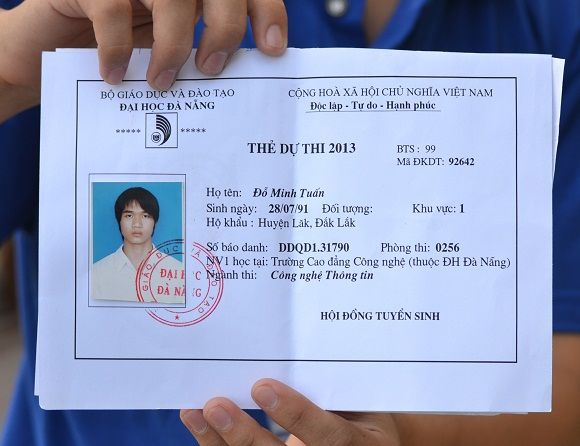 BỘ GIÁO DỤC VÀ ĐÀO TẠO
ĐẠI HỌC ĐÀ NẴNG
***** *****
CỘNG HOÀ XÃ HỘI CHỦ NGHĨA VIỆT NAM
Độc lập - Tự do - Hạnh phúc
THẺ DỰ THI 2013
BTS : 99
Mã ĐKDT: 92642
Họ tên: Đỗ Minh Tuấn
Sinh ngày: 28/07/91 Đối tượng: Khu vực: 1
Hộ khẩu : Huyện Lăk, Đắk Lắk
Số báo danh: DDQD1.31790 Phòng thi: 0256
NV1 học tại: Trường Cao đẳng Công nghệ (thuộc ĐH Đà Nẵng)
Ngành thi: Công nghệ Thông tin
HỘI ĐỒNG TUYỂN SINH
GIÁO DỤC TẠO
ĐẠI HỌC
ĐÀ NẴNG